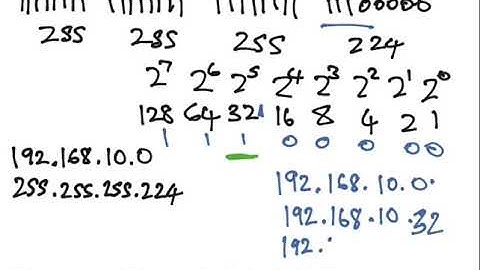 255 255 255 224
2⁷ 2⁶ 2⁵ 2⁴ 2³ 2² 2¹ 2⁰
128 64 32 16 8 4 2 1
1 1 1 0 0 0 0 0
192.168.10.0
255.255.255.224
192.168.10.0.
192.168.10.32
192.